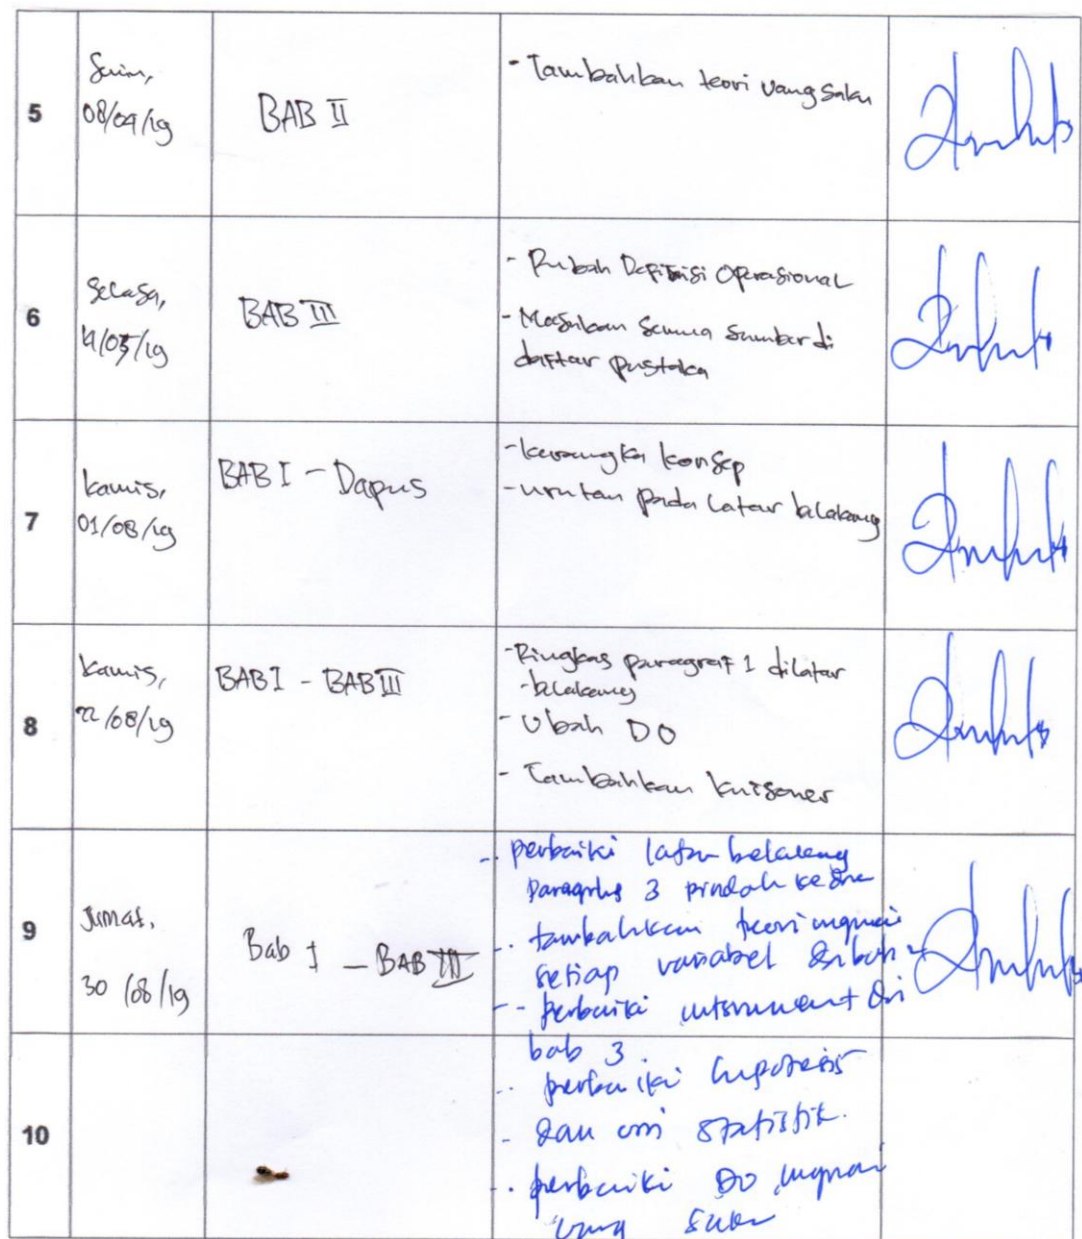 5
Senin,
08/04/19
BAB II
- Tambahkan teori uang saku
6
Selasa,
14/05/19
BAB III
- Rubah Definisi Operasional
- Masukan Semua Sumber di
daftar pustaka
7
Kamis,
01/08/19
BAB I - Dapus
- Kerangka konsep
- urutan pada latar belakang
8
Kamis,
22/08/19
BAB I - BAB III
- Ringkas paragraf 1 dilatar
- belakang
- Ubah DO
- Tambahkan kuisoner
9
Jumat,
30/08/19
Bab I - BAB III
- perbaiki latar belakang
Paragraf 3 pindah ke
- tambahkan teori mengenai
setiap variabel
- perbaiki instrument di
bab 3.
10
- perbaiki hipotesis
- dan uji statistik.
- perbaiki DO mengenai
uang saku